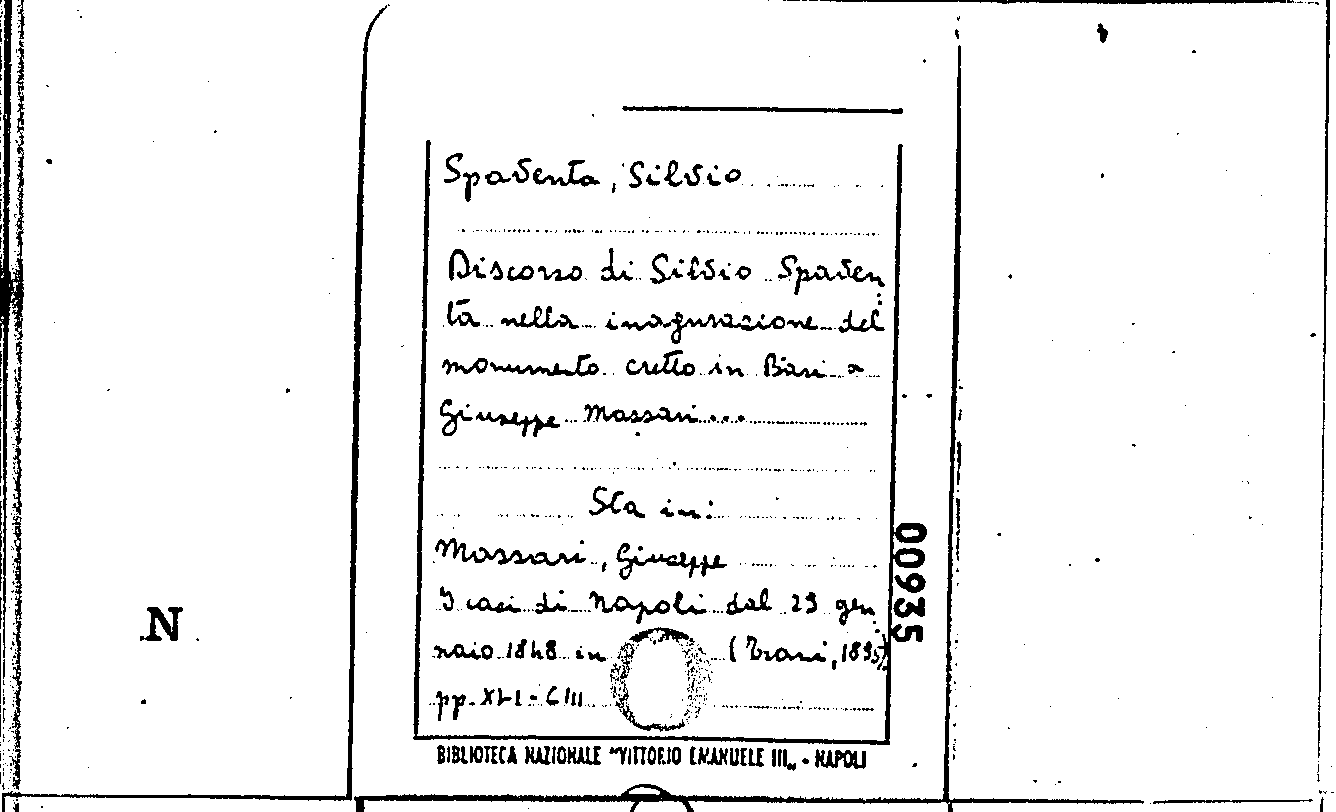 Spaventa, Silvio
Discorso di Silvio Spaven
ta nella inagurazione del
monumento eretto in Bari a
Giuseppe Massari...
Sta in:
Massari, Giuseppe
I casi di Napoli dal 29 gen
naio 1848 in (Trani, 1895)
pp. XLI - CIII
BIBLIOTECA NAZIONALE "VITTORIO EMANUELE III„ - NAPOLI
00935
N